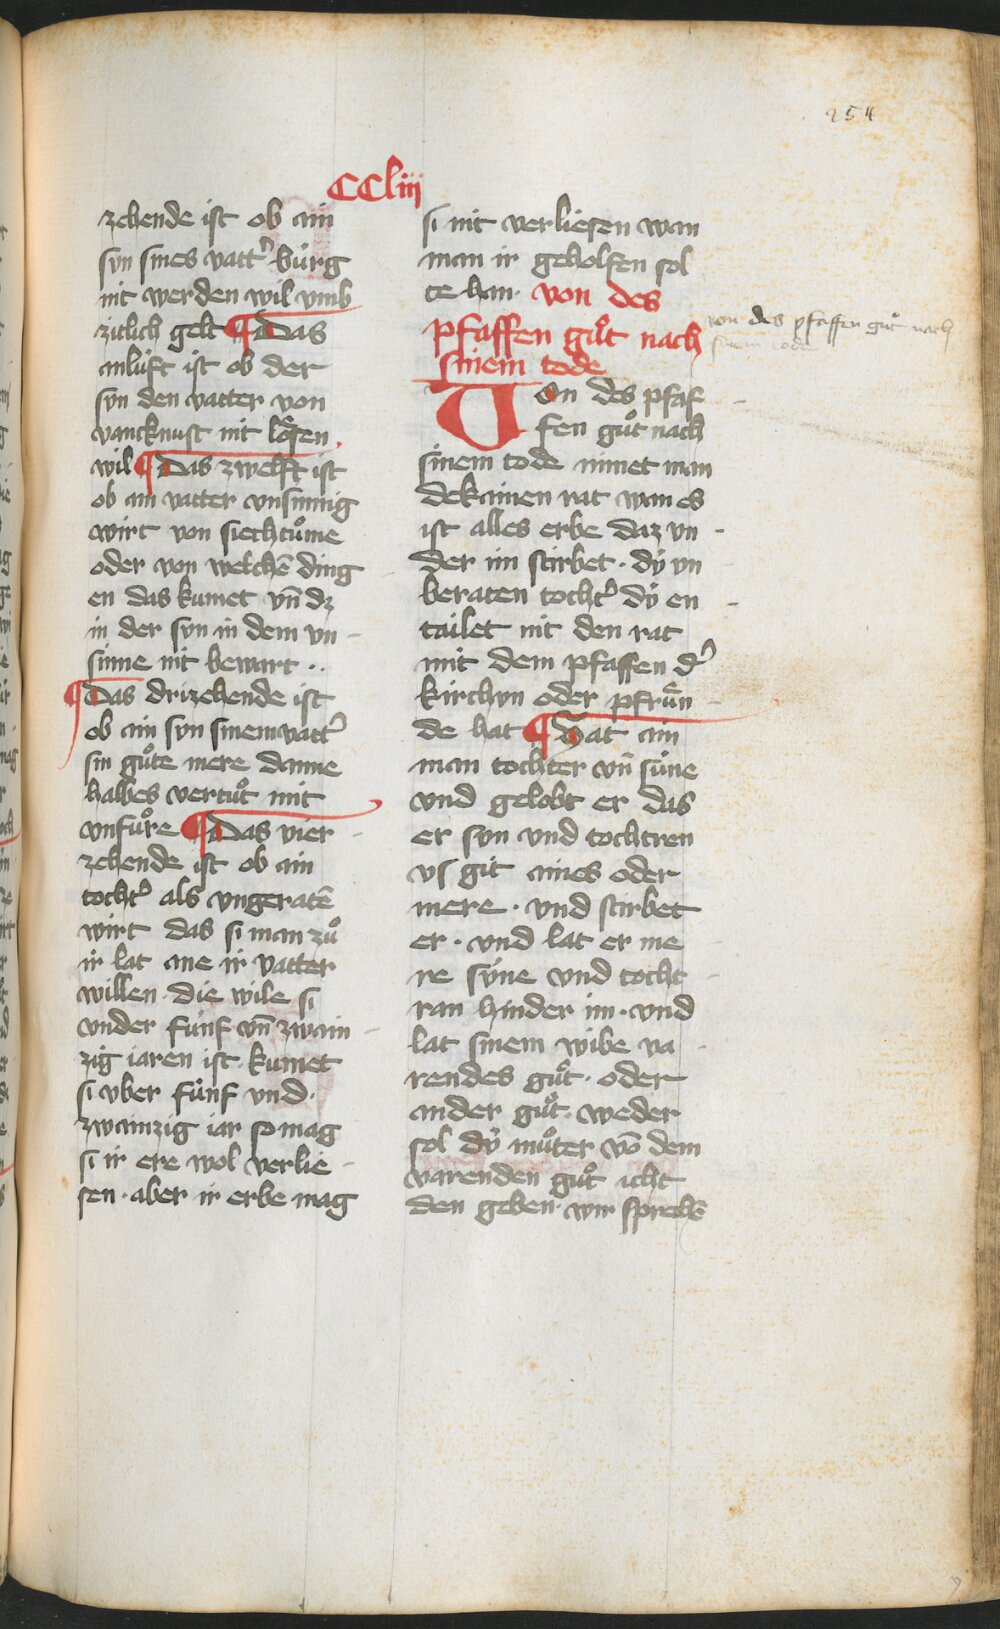 254
CCLiii
zehende ist ob ain
syn sines vatt᾽ bürg
nit werden wil vmb
zitlich gelt ¶ Das
ainlüft ist ob der
syn den vatter von
vancknust nit lo᷄sen
wil ¶ Das zwelft ist
ob ain vatter vnsinnig
wirt von siechtuͦme
oder von welchē ding
en das kumet vn̄ dz
in der syn in dem vn
sinne nit bewart ..
¶ Das drizehende ist
ob ain syn sinem vatt᾽
sin guͦte mere danne
halbes vertuͦt mit
vnfuͦre ¶ Das vier
zehende ist ob ain
tocht᾽ als vngeratē
wirt das si man zuͦ
ir lat ane ir vatter
willen · die wile si
vnder fünf vn̄ zwain
zig iaren ist · kumet
si vber fünf vnd ·
zwainzig iar so mag
si ir ere wol verlie
sen · aber ir erbe mag
si nit verliesen wan
man ir geholfen sol
te han · von des
pfaffen guͦt nach
sinem tode
Von des pfaf
fen guͦt nach
sinem tode nimet man
dekainen rat wan es
ist alles erbe daz vn
der im stirbet · dÿ vn
beraten tocht᾽ dÿ en
tailet nit den rat
mit dem pfaffen d᾽
kirchyn oder pfruͦn
de hat ¶ Hat ain
man tochter vn̄ süne
vnd gelobt er das
er syn vnd tochtren
vs git aines oder
mere · vnd stirbet
er · vnd lat er me
re sÿne vnd tocht
ran hinder im · vnd
lat sinem wibe va
rendes guͦt · oder
ander guͦt · weder
sol dÿ muͦter vō dem
varenden guͦt icht
den geben · wir sprechē
von des pfaffen guͦt nach
sinem tode